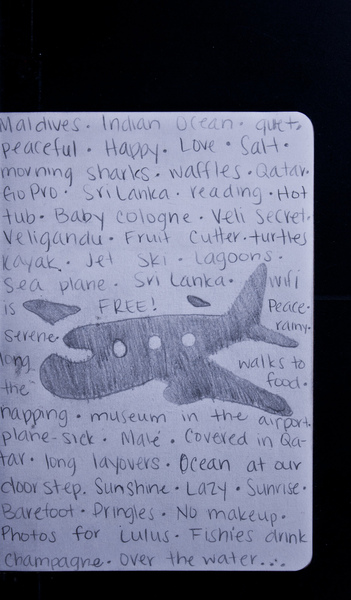 Maldives · Indian Ocean · quiet ·
peaceful · Happy · Love · Salt ·
morning sharks · waffles · Qatar ·
GoPro · Sri Lanka · reading · Hot
tub · Baby cologne · Veli Secret ·
Veligandu · Fruit Cutter · turtles
Kayak · Jet Ski · Lagoons ·
Sea plane · Sri Lanka · wifi
is FREE! Peace ·
serene rainy ·
long walks to
the food ·
napping · museum in the airport ·
plane-sick · Malé · Covered in Qa-
tar · long layovers · Ocean at our
door step. Sunshine · Lazy · Sunrise ·
Barefoot · Pringles · No makeup ·
Photos for Lulus · Fishies drink
champagne · over the water...